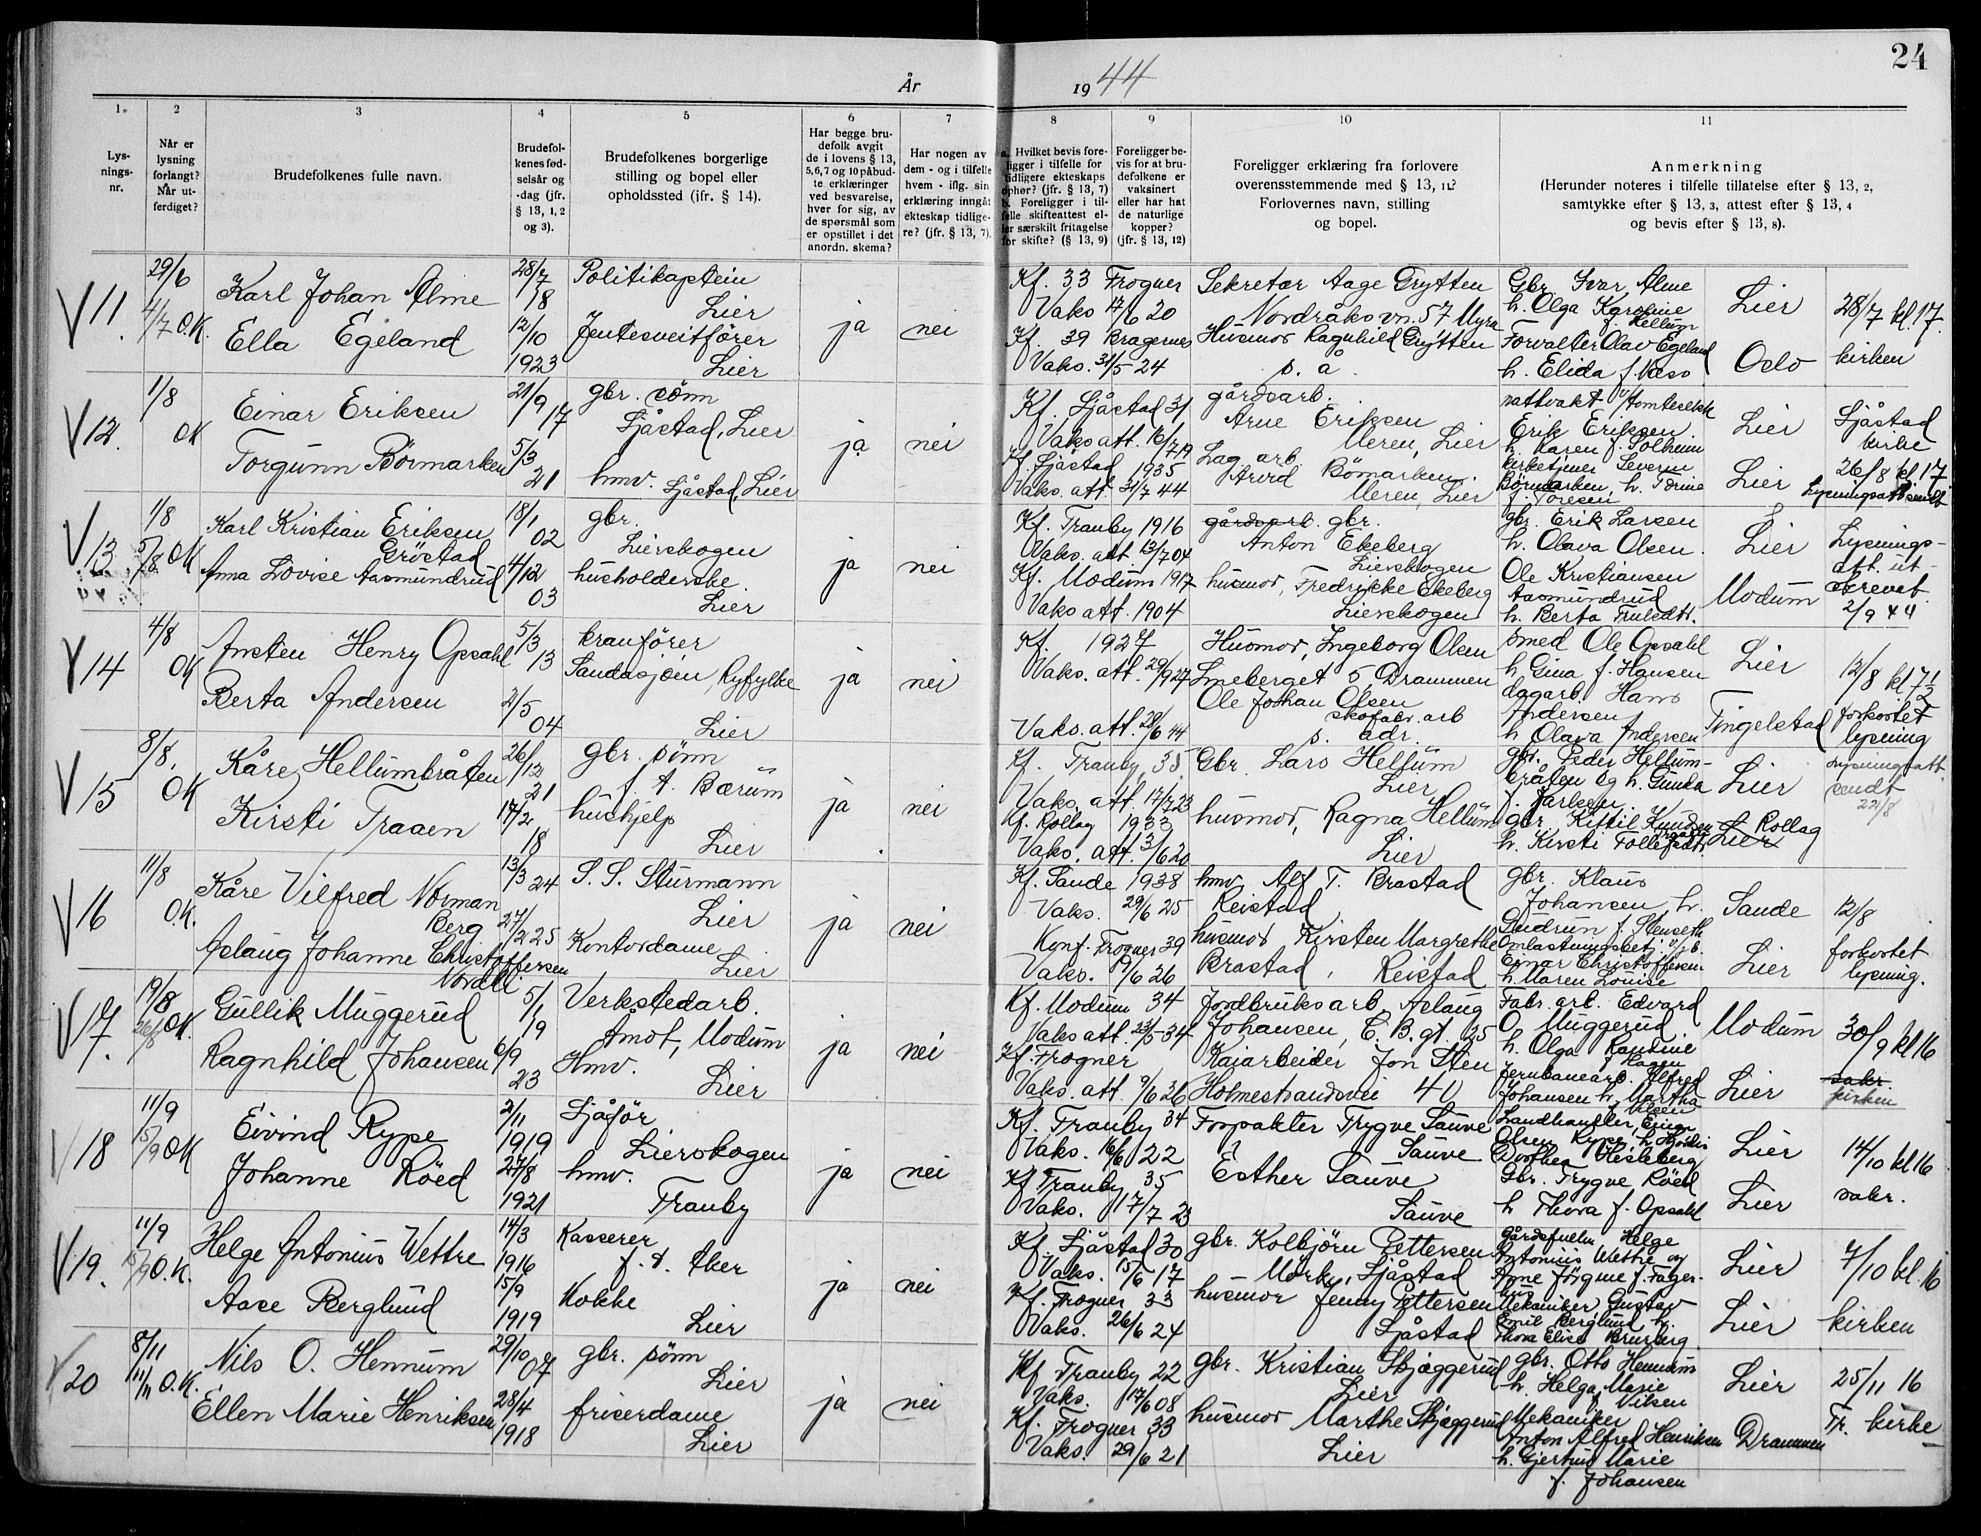 24
År 1944
1. Lysningsnr.
2 Når er lysning forlangt? Når utferdiget?
3 Brudefolkenes fulle navn.
4 Brudefolkenes fødselsår og -dag (jfr. § 13, 1, 2 og 3).
5 Brudefolkenes borgerlige stilling og bopel eller opholdssted (jfr. § 14).
6 Har begge brudefolk avgit de i lovens § 13, 5, 6, 7 og 10 påbudte erklæringer ved besvarelse, hver for sig, av de spørsmål som er opstillet i det anordn. skema?
7 Har nogen av dem - og i tilfelle hvem - iflg. sin erklæring inngått ekteskap tidligere? (jfr. § 13, 7).
8 a. Hvilket bevis foreligger i tilfelle for tidligere ekteskaps ophør? (jfr. § 13, 7) b. Foreligger i tilfelle skifteattest eller særskilt fritagelse for skifte? (§ 13, 9)
9 Foreligger bevis for at brudefolkene er vaksinert eller har hat de naturlige kopper? (jfr. § 13, 12)
10 Foreligger erklæring fra forlovere overensstemmende med § 13, 11? Forlovernes navn, stilling og bopel.
11 Anmerkning (Herunder noteres i tilfelle tillatelse efter § 13, 2, samtykke efter § 13, 3, attest efter § 13, 4 og bevis efter § 13, 8).
V 11. 29/6 4/7 O.K. Karl Johan Alme 28/7 18 Politikaptein Lier
Ella Egeland 12/10 1923 Jentesveitfører Lier ja nei
Kf. 33 Frogner Vaks 17/6 20 Sekretær Aage Grytten Nordråksvn. 57 Myra Gbr. Ivar Alme h. Olga Karoline f. Hellum Lier 28/7 kl. 17.
Kf. 39 Bragernes Vaks. 31/5 24 Husmor Ragnhild Grytten s. å. Forvalter Olav Egeland h. Elida f. Næss Oslo kirken
V 12. 1/8 OK Einar Eriksen 21/9 17 gbr. sønn Sjåstad, Lier
Torgunn Börmarken 5/3 21 hmv. Sjåstad, Lier ja nei
Kf. Sjåstad 31 Vaks att. 16/7 19 gårdsarb. Arne Eriksen Meren, Lier nattvakt Erik Eriksen h. Karen f. Solheim Lier Sjåstad kirke
Kf. Sjåstad 1935 Vaks. att 31/7 44 Lag. arb. Arvid Bömarken. Meren, Lier kirketjener Severin Börmarken, h. Torine f. Toresen Lier 26/8 kl 17 Lysningsatt. sendt
V 13 1/8 5/8 OK Karl Kristian Eriksen Gröstad 18/1 02 gbr. Lierskogen
Anna Lovise Aasmundrud 4/12 03 husholderske Lier ja nei
Kf. Tranby 1916 Vaks. att 13/7 04 gårdsarb. gbr. Anton Ekeberg Lierskogen gbr. Erik Larsen h. Olava Olsen. Lier Lysnings-
Kf. Modum 1917 Vaks att. 1904 husmor, Fredrikke Ekeberg Lierskogen Ole Kristiansen Aasmundrud h. Berta Trulsdtr. Modum att. ut- skrevet 2/9 44
V 14 4/8 OK Ansten Henry Opsahl 5/3 13 kranfører Sandssjøen, Ryfylke
Berta Andersen 2/5 04 Lier ja nei
Kf. 1927 Vaks. att. 29/9 27 Husmor, Ingeborg Olsen Smeberget 5 Drammen smed Ole Opsahl h Gina f. Hansen Lier 12/8 kl 7 1/2
Vaks. att. 28/6 44 Ole Johan Olsen skofabr. arb s. adr. dagarb. Hans Andersen h Olava Andersen Tingelstad forkortet lysning
V 15 8/8. OK Kåre Hellumbråten 26/12 21 gbr. sønn f. t. Bærum
Kirsti Traaen 17/2 18 hushjelp Lier ja nei
Kf. Tranby, 35 Vaks. att. 17/7 23 Gbr. Lars Hellum Lier gbr. Peder Hellumbråten og h. Gunda f. Karlsen Lier Lysningsatt. sendt 22/8
Kf. Rollag 1933 Vaks. att. 3/6 20 husmor, Ragna Hellum Lier gbr. Kittil Knudsen Traaen h. Kirsti Tollefsdtr. Lier Rollag
V 16 11/8 O.K. Kåre Vilfred Norman Berg 13/3 24 S. S. Sturmann Lier
Aslaug Johanne Christoffersen Nordli 27/2 25 Kontordame Lier ja nei
Kf. Sande 1938 Vaks. 29/6 25 hmv Alf T. Brastad Reistad gbr. Klaus Johansen h. Gudrun f. Stenseth Sande 12/8
Konf. Frogner 39 Vaks. 19/6 26 husmor Kirsten Margrethe Brastad, Reistad Omlastningsbetj. v/jb. Einar Christoffersen h. Maren Louise Lier forkortet lysning.
V 17. 19/8 26/8 OK. Gullik Muggerud 5/1 19 Verkstedarb. Åmot, Modum
Ragnhild Johansen 6/9 23 Hmv. Lier ja nei
Kf. Modum 34 Vaks att. 23/5-34 Jordbruksarb, Aslaug Johansen, C. B. gt. 25 Fabr. arb. Edvard O. Muggerud h. Olga Kantine f. Haagen Modum 30/9 kl 16
Kf. Frogner Vaks. att. 9/6 36 Kaiarbeider Jon Sten Holmestrandsvei 40 Jernbanearb. Alfred Johansen h. Martha f. Nilsen Lier sakr. kirken
V 18 11/9 15/9 OK Eivind Rype 2/11 1919 Sjåfør Lierskogen
Johanne Röed 27/8 1921 hmv. Tranby ja nei
Kf. Tranby 34 Vaks. 16/6 22 Forpakter Trygve Sauve Sauve Landhandler, Einar Olsen Rype h. Hjördis Dorthea Hesleberg Lier 14/10 kl 16
Kf Tranby 35 Vaks. 17/7 23 Esther Sauve Sauve Gbr. Trygve Röed h Thora f. Opsahl Lier sakr.
V 19. 11/9 15/9 O.K. Helge Antonius Wettre 14/3 1916 Kasserer f. t. Aker
Aase Berglund 15/9 1919 Kokke Lier ja nei
Kf. Sjåstad 30 Vaks. 15/6 17 gbr. Kolbjörn Pettersen Mörk, Sjåstad Gårdsfullm. Helge Antonius Wettre og Anne Jörgine f. Fager- Lier 7/10 kl. 16
Kf. Frogner 33 Vaks. 26/6 24 husmor Jenny Pettersen Sjåstad Mekaniker Gustav Emil Berglund h. Thora Elise Bruserg Lier kirken
V 20 8/11 11/11 O.K. Nils O. Hennum 29/10 07 gbr. sønn Lier
Ellen Marie Henriksen 28/4 1918 friserdame Lier ja nei
Kf Tranby 22 Vaks. 17/6 08 gbr. Kristian Skjæggerud Lier gbr. Otto Hennum h. Helga Marie f. Nilsen Lier 25/11 16
Kf. Frogner 33 Vaks. 29/6 21 husmor Marthe Skjæggerud Lier Mekaniker Anton Alfred Henriksen h. Gjertrud Marie f. Johansen Drammen Tr. kirke